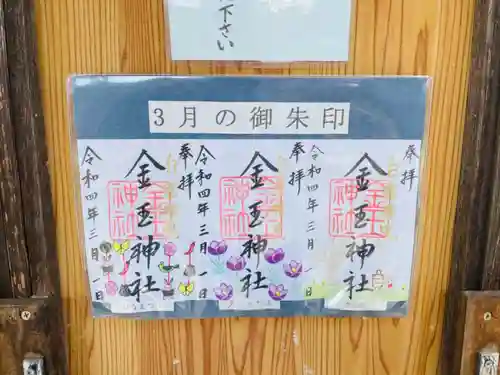 下さい
3月の御朱印
奉拝
金王神社
令和四年三月一日
奉拝
金王神社
令和四年三月一日
奉拝
金王神社
令和四年三月一日